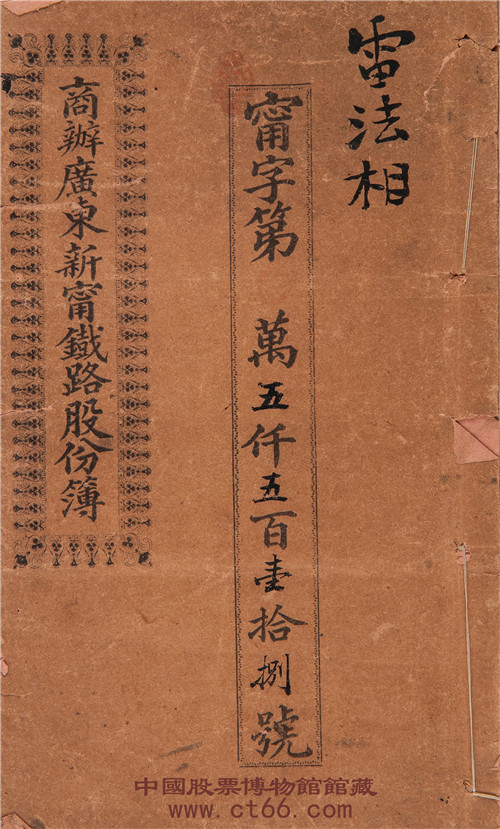 雷法相
甯字第 萬五仟五百壹拾捌號
商辦廣東新甯鐵路股份簿
中國股票博物館館藏
www.ct66.com